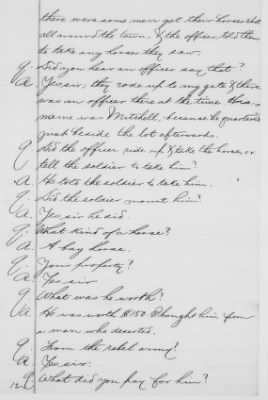 there were some men got their horses shod
all around the town, & the officer told them
to take any horses they saw.
Q. Did you hear an officer say that?
A. Yes sir, they rode up to my gate & there
was an officer there at the time. His
name was Mitchell, because he quartered
just beside the lot afterwards.
Q Did the officer ride up & take the horse, or
tell the soldier to take him?
A. He told the soldier to take him.
Q. Did the soldier mount him?
A. Yes sir he did.
Q. What kind of a horse?
A. A bay horse.
Q. Your property?
A. Yes sir
Q. What was he worth?
A. He was worth $150 I bought him from
a man who deserted.
Q. From the rebel army?
A. Yes sir.
Q. What did you pay for him?
12